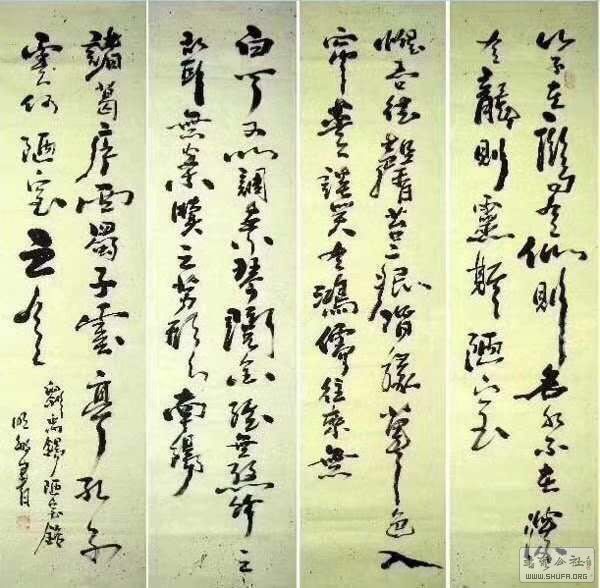 山不在高有仙則名水不在深
有龍則靈斯陋室
惟吾德馨苔痕階緣草色入
簾青談笑有鴻儒往來無
白丁可以調素琴閱金經無絲竹之
亂耳無案牘之勞形南陽
諸葛廬西蜀子雲亭孔子
雲何陋室之有
劉禹錫陋室銘
書
書法公社
WWW.SHUFA.ORG